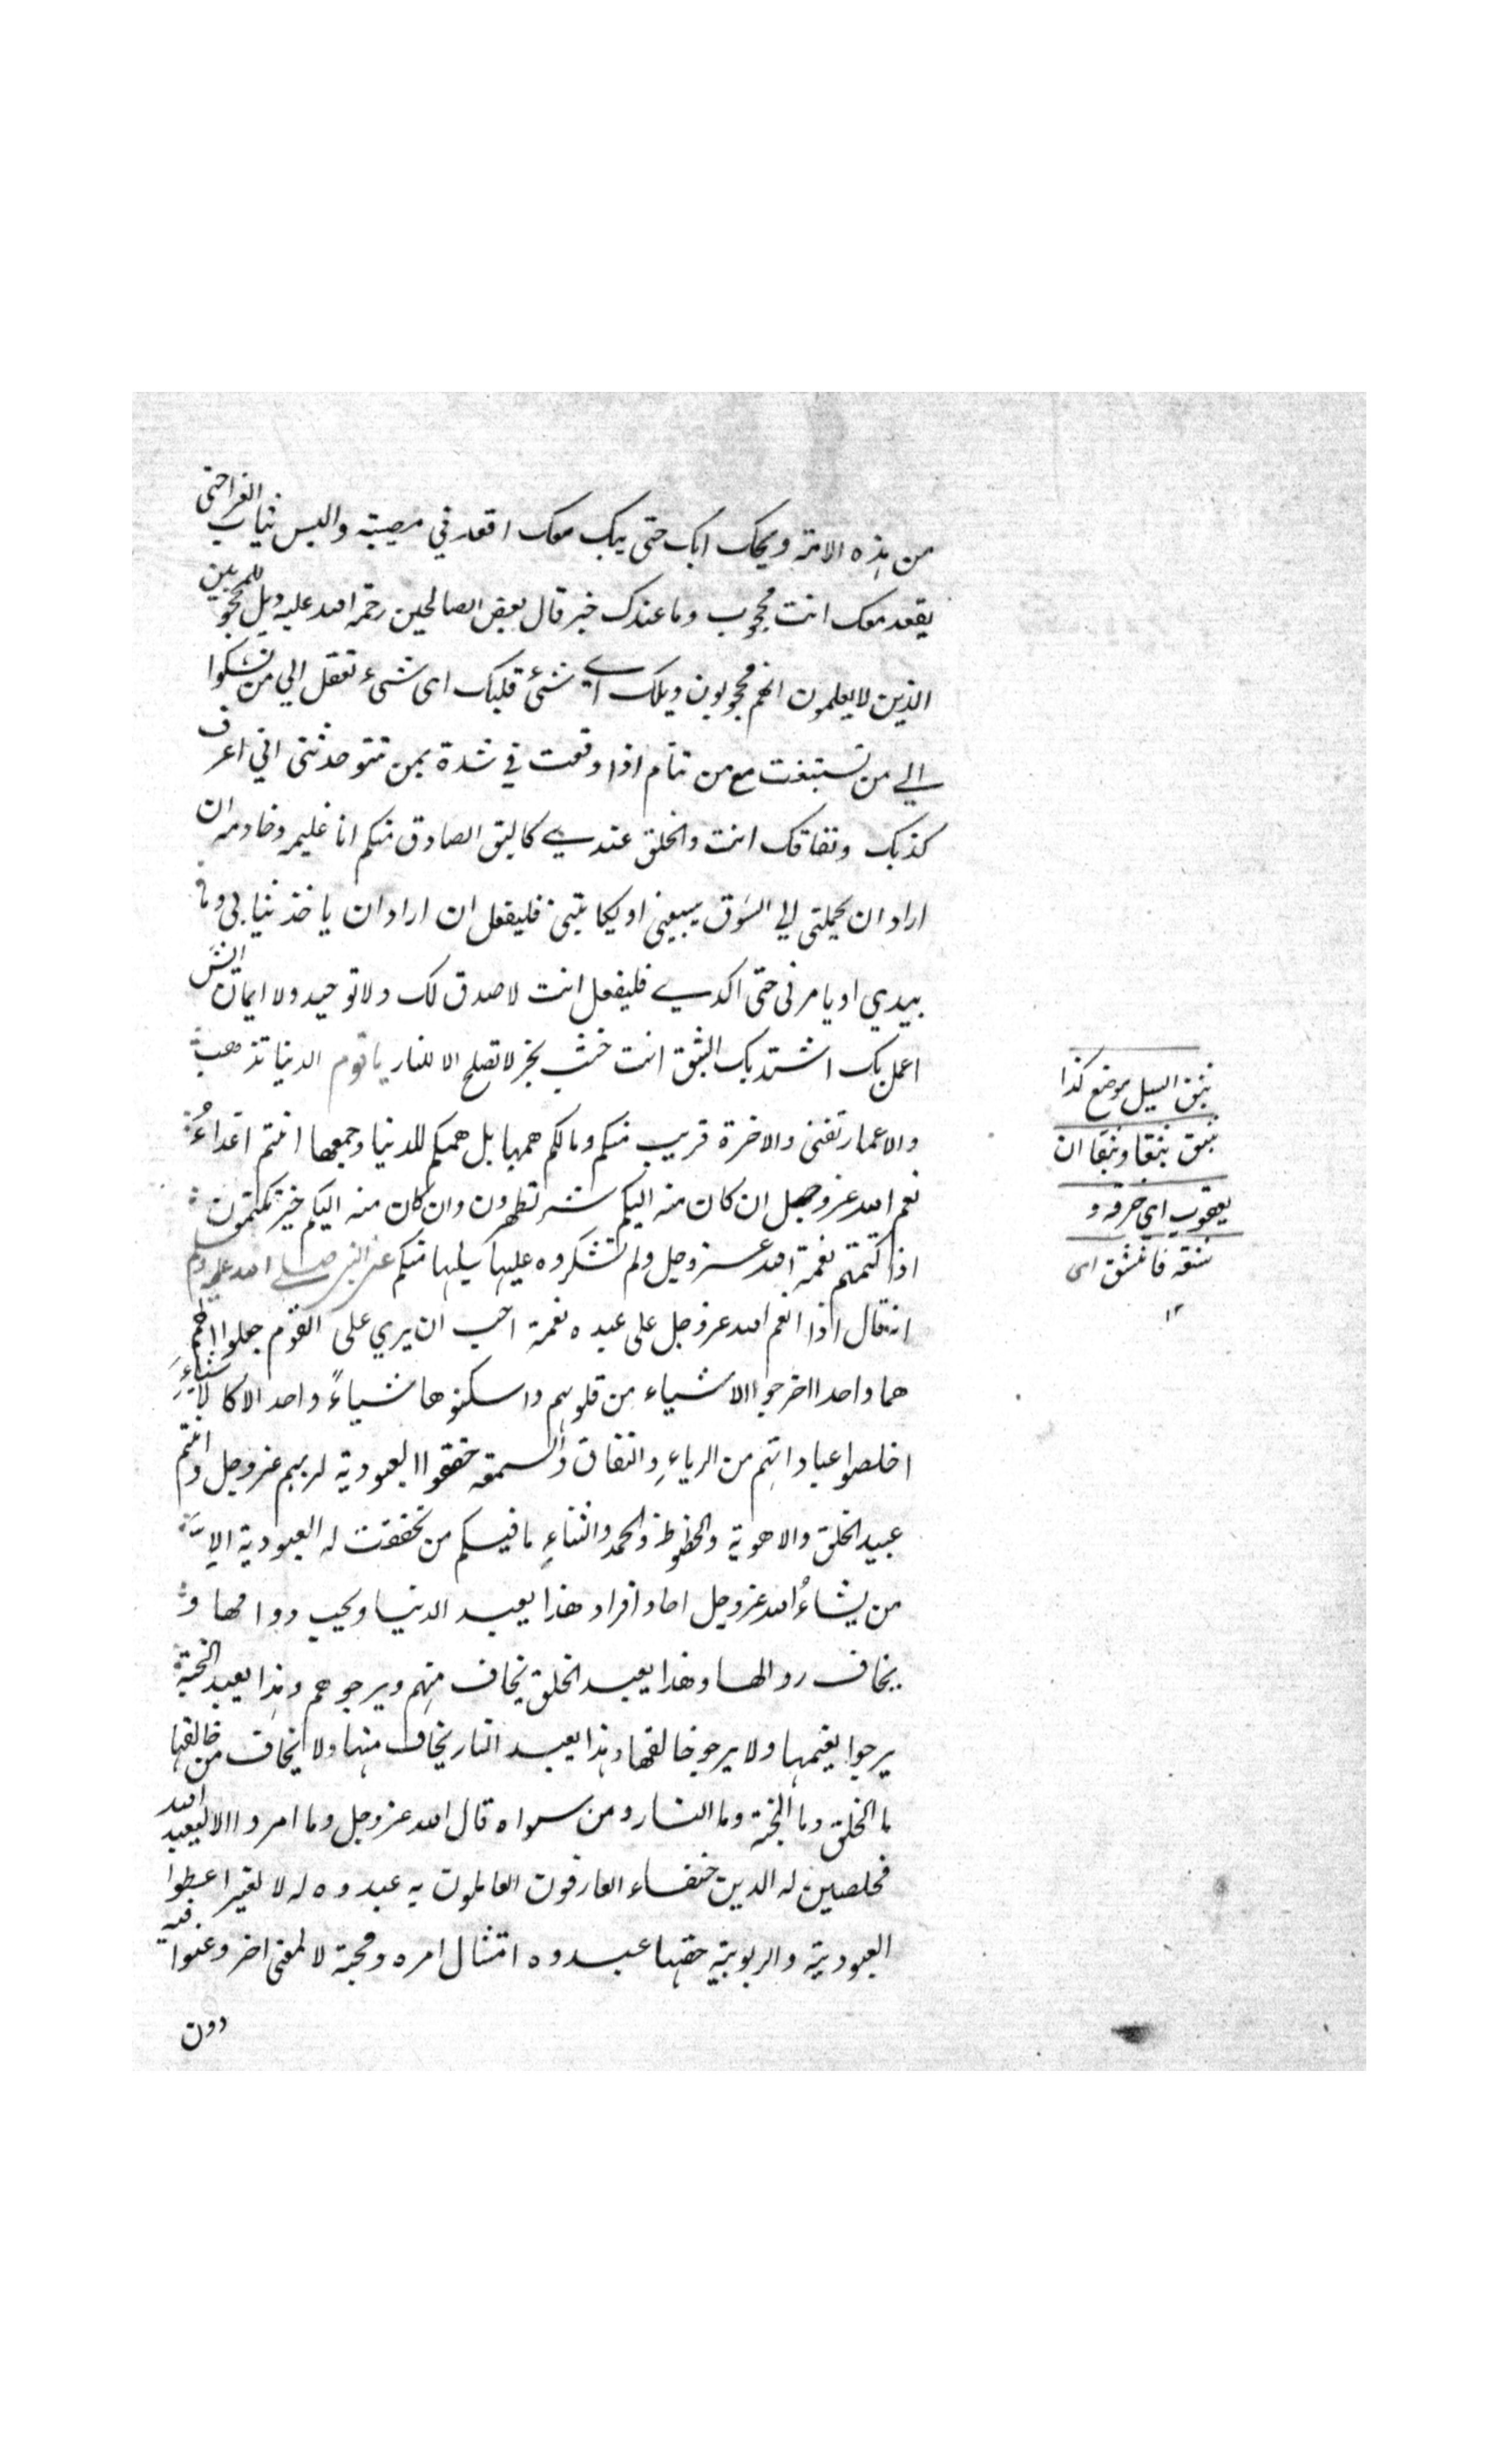 من هذه الامة ويحك ابك حتى يبك معك اقعد في مصيبة والبس ثياب العزا حتى
يقعد معك انت محجوب وما عندك خبر قال بعض الصالحين رحمة الله عليه ويل للمحجوبين
الذين لا يعلمون انهم محجوبون ويلك اي شئ قلبك اى شىء تعقل الي من تشكوا
الي من تستغت مع من تنام اذا وقعت في شدة بمن تثق حدثني اني اعرف
كذبك ونفاقك انت والخلق عندي كالبق الصادق منكم انا غليمه وخادمه ان
اراد ان يحملني الي السوق يبيعني او يكاتبني فليفعل ان اراد ان ياخذ ثيابي وما
بيدي او يامرني حتى اكدي فليفعل انت لا صدق لك ولا توحيد ولا ايمان ايش
اعمل بك اشتد بك البثق انت خشب نخر لا تصلح الا للنار يا قوم الدنيا تذهب
والاعمار تفنى والاخرة قريب منكم وما لكم همها بل همكم للدنيا وجمعها انتم اعداءُ
نعم الله عز وجل ان كان منه اليكم شر تظهرون وان كان منه اليكم خير تكتمون
اذا كتمتم نعمة الله عز وجل ولم تشكروه عليها يسلبها منكم عن النبي صلى الله عليه وسلم
انه قال اذا انعم الله عز وجل على عبده نعمة احب ان يري على القوم جعلوا الهم
هما واحدا اخرجوا الاشياء من قلوبهم واسكنوها شياءً واحد الا كالاشياءِ
اخلصوا عباداتهم من الرياءِ والنفاق والسمعة حققوا العبودية لربهم عز وجل وانتم
عبيد الخلق والاهوية والحظوظ والحمد والثناءِ ما فيكم من تحققت له العبودية الا
من يشاءُ الله عز وجل احاد افراد هذا يعبد الدنيا ويحب دوامها و
يخاف زوالها وهذا يعبد الخلق يخاف منهم ويرجوهم وهذا يعبد الجنة
يرجوا نعيمها ولا يرجو خالقها وهذا يعبد النار يخاف منها ولا يخاف من خالقها
ما الخلق وما الجنة وما النار ومن سواه قال الله عز وجل وما امروا الا ليعبد الله
مخلصين له الدين حنفاء العارفون العاملون به عبدوه له لا لغير اعطوا
العبودية والربوبية حقها عبدوه امتثال امره ومحبة لا لمعنى اخر وعبوا فيه
دون
بثق السيل موضع كذا
يبثق بثقا وبثقا ان
يعقوب اي خرقه و
شقه فانشق اى
١٢